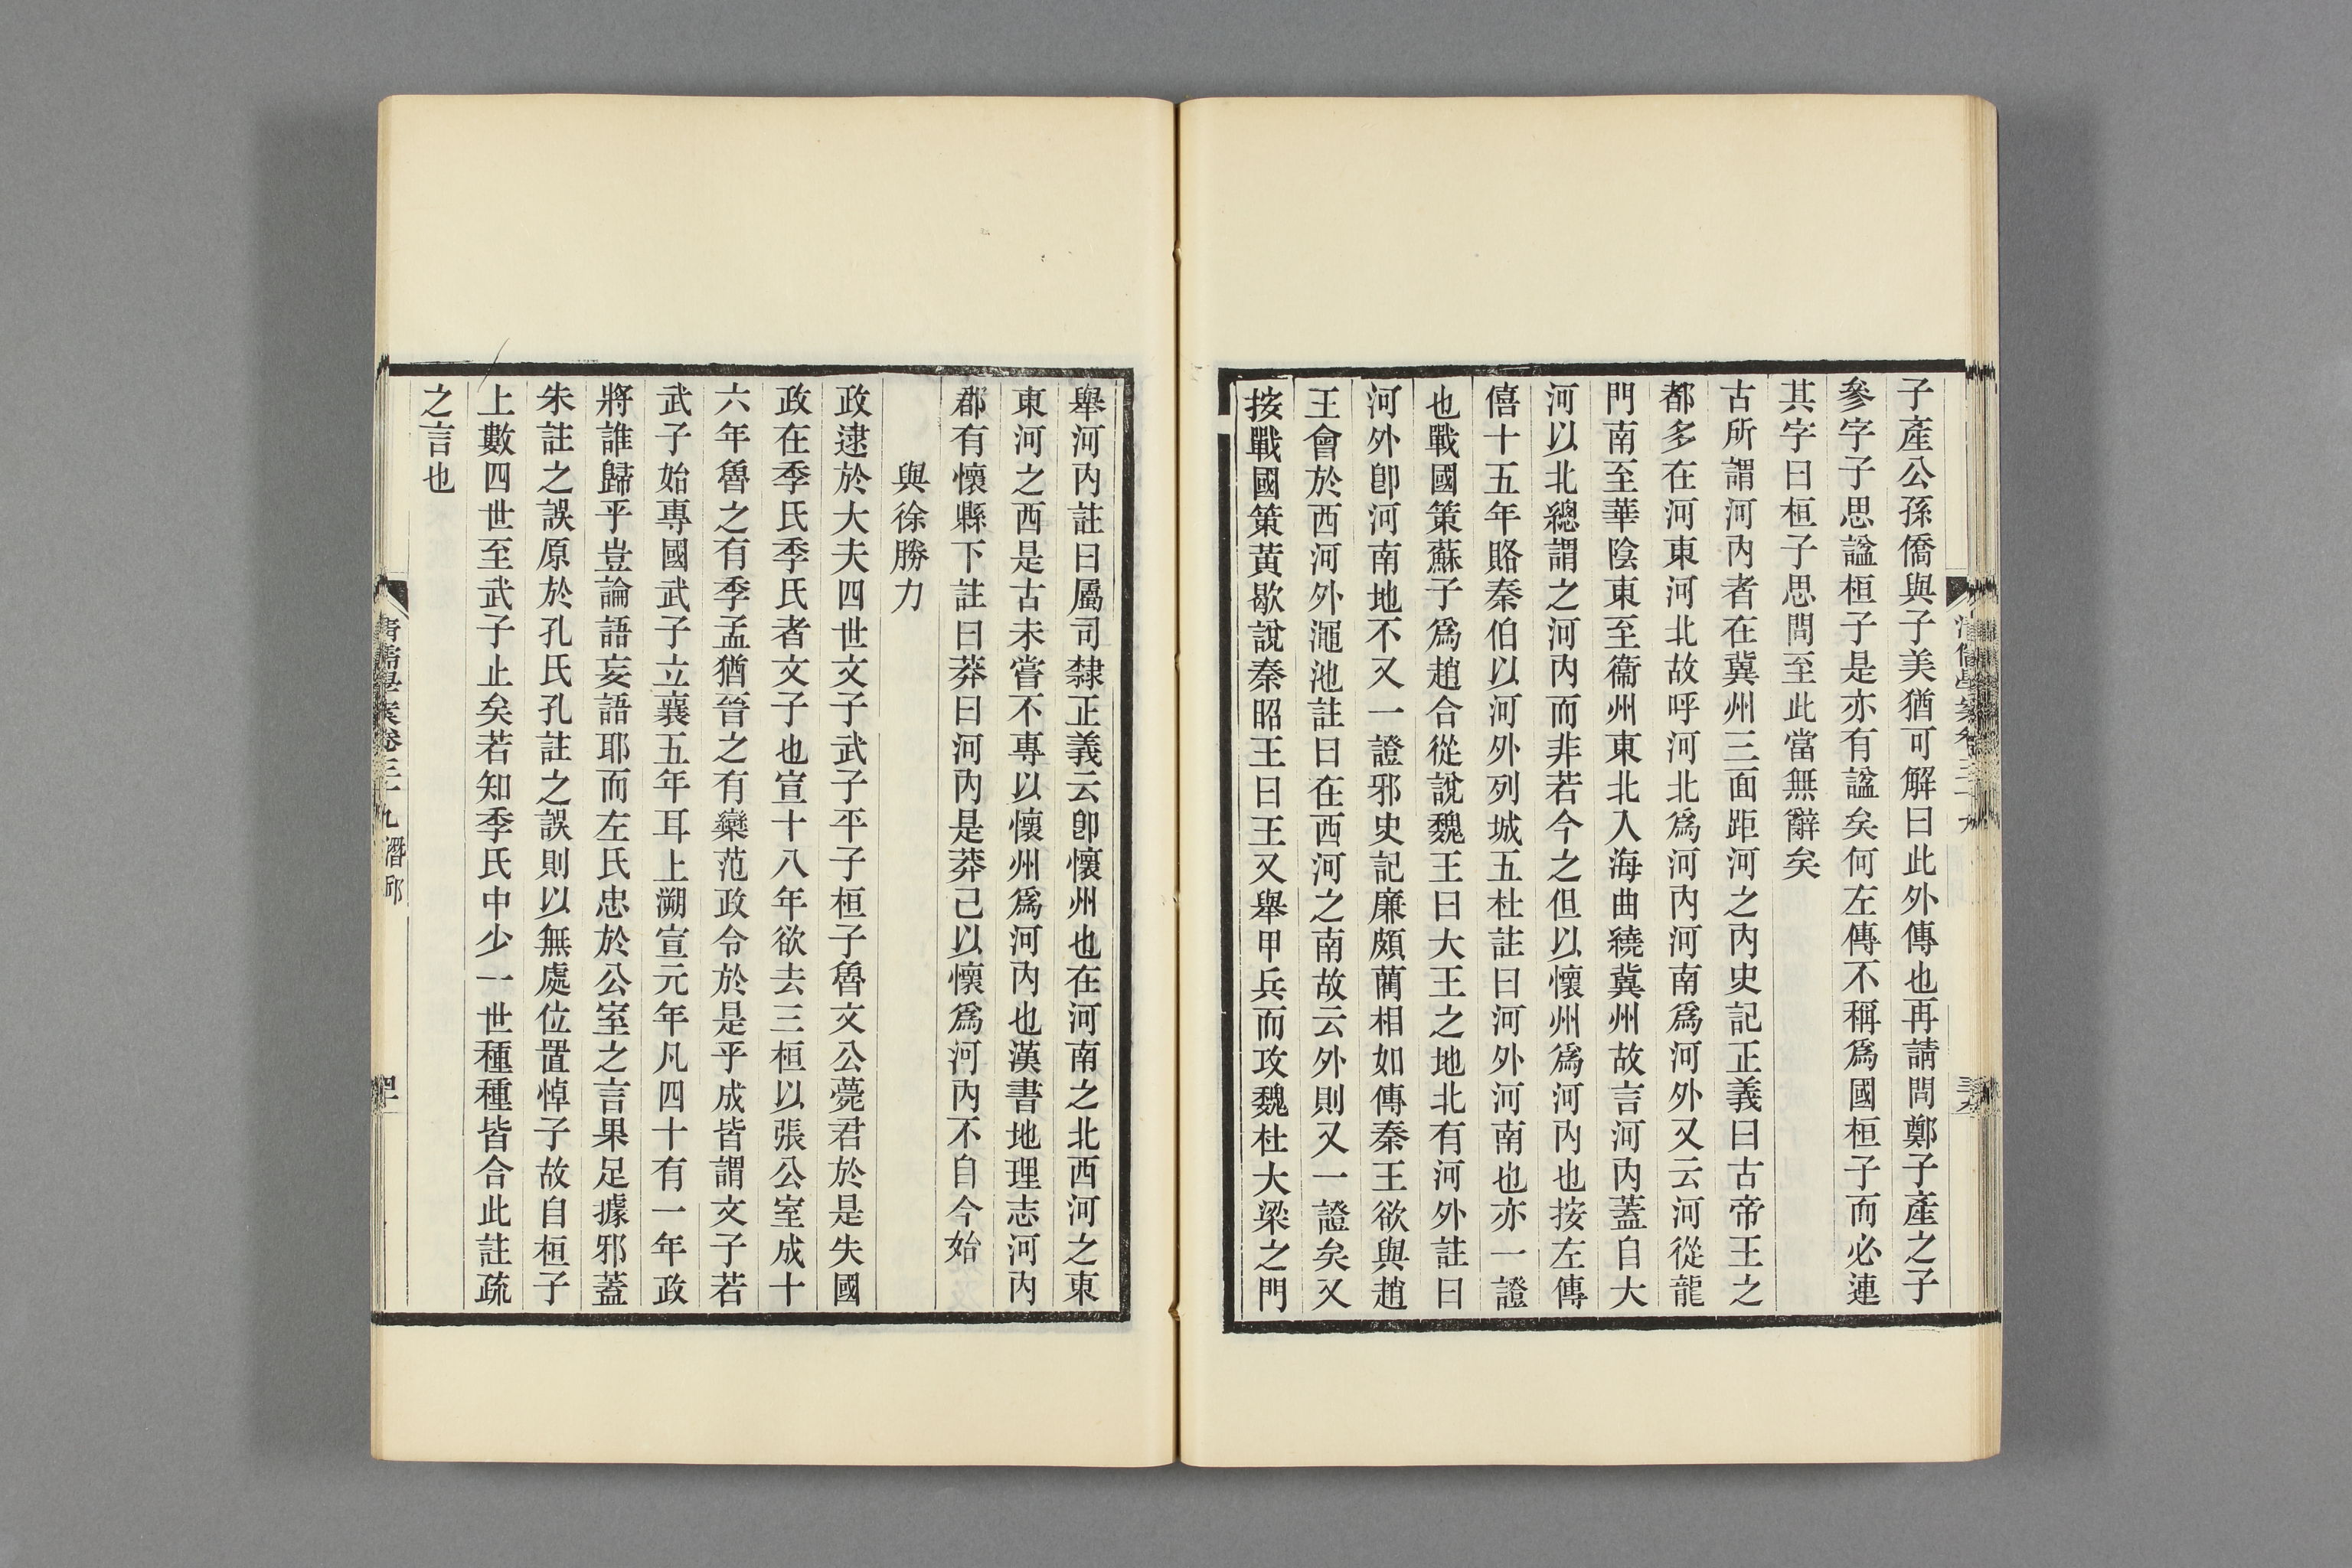 子產公孫僑與子美猶可解曰此外傳也再請問鄭子產之子
參字子思諡桓子是亦有諡矣何左傳不稱爲國桓子而必連
其字曰桓子思問至此當無辭矣
古所謂河內者在冀州三面距河之內史記正義曰古帝王之
都多在河東河北故呼河北爲河內河南爲河外又云河從龍
門南至華陰東至衞州東北入海曲繞冀州故言河內蓋自大
河以北總謂之河內而非若今之但以懷州爲河內也按左傳
僖十五年賂秦伯以河外列城五杜註曰河外河南也亦一證
也戰國策蘇子爲趙合從說魏王曰大王之地北有河外註曰
河外卽河南地不又一證邪史記廉頗藺相如傳秦王欲與趙
王會於西河外澠池註曰在西河之南故云外則又一證矣又
按戰國策黃歇說秦昭王曰王又舉甲兵而攻魏杜大梁之門
舉河內註曰屬司隸正義云卽懷州也在河南之北西河之東
東河之西是古未嘗不專以懷州爲河內也漢書地理志河內
郡有懷縣下註曰莽曰河內是莽己以懷爲河內不自今始
與徐勝力
政逮於大夫四世文子武子平子桓子魯文公薨君於是失國
政在季氏季氏者文子也宣十八年欲去三桓以張公室成十
六年魯之有季孟猶晉之有欒范政令於是乎成皆謂文子若
武子始專國武子立襄五年耳上溯宣元年凡四十有一年政
將誰歸乎豈論語妄語耶而左氏忠於公室之言果足據邪蓋
朱註之誤原於孔氏孔註之誤則以無處位置悼子故自桓子
上數四世至武子止矣若知季氏中少一世種種皆合此註疏
之言也
清儒學案卷三十九 潛邱